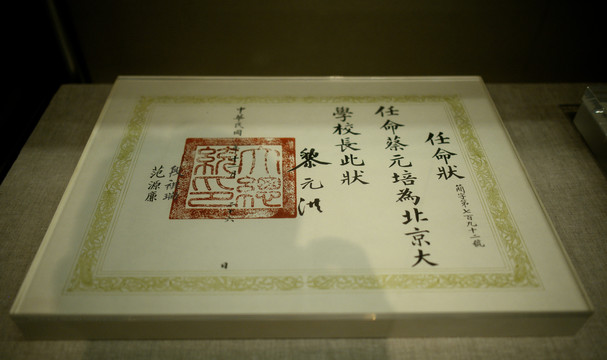 任命狀
簡字第七百九十二號
任命蔡元培為北京大
學校長此狀
黎元洪
大總統印
中華民國
日
段祺瑞
范源廉